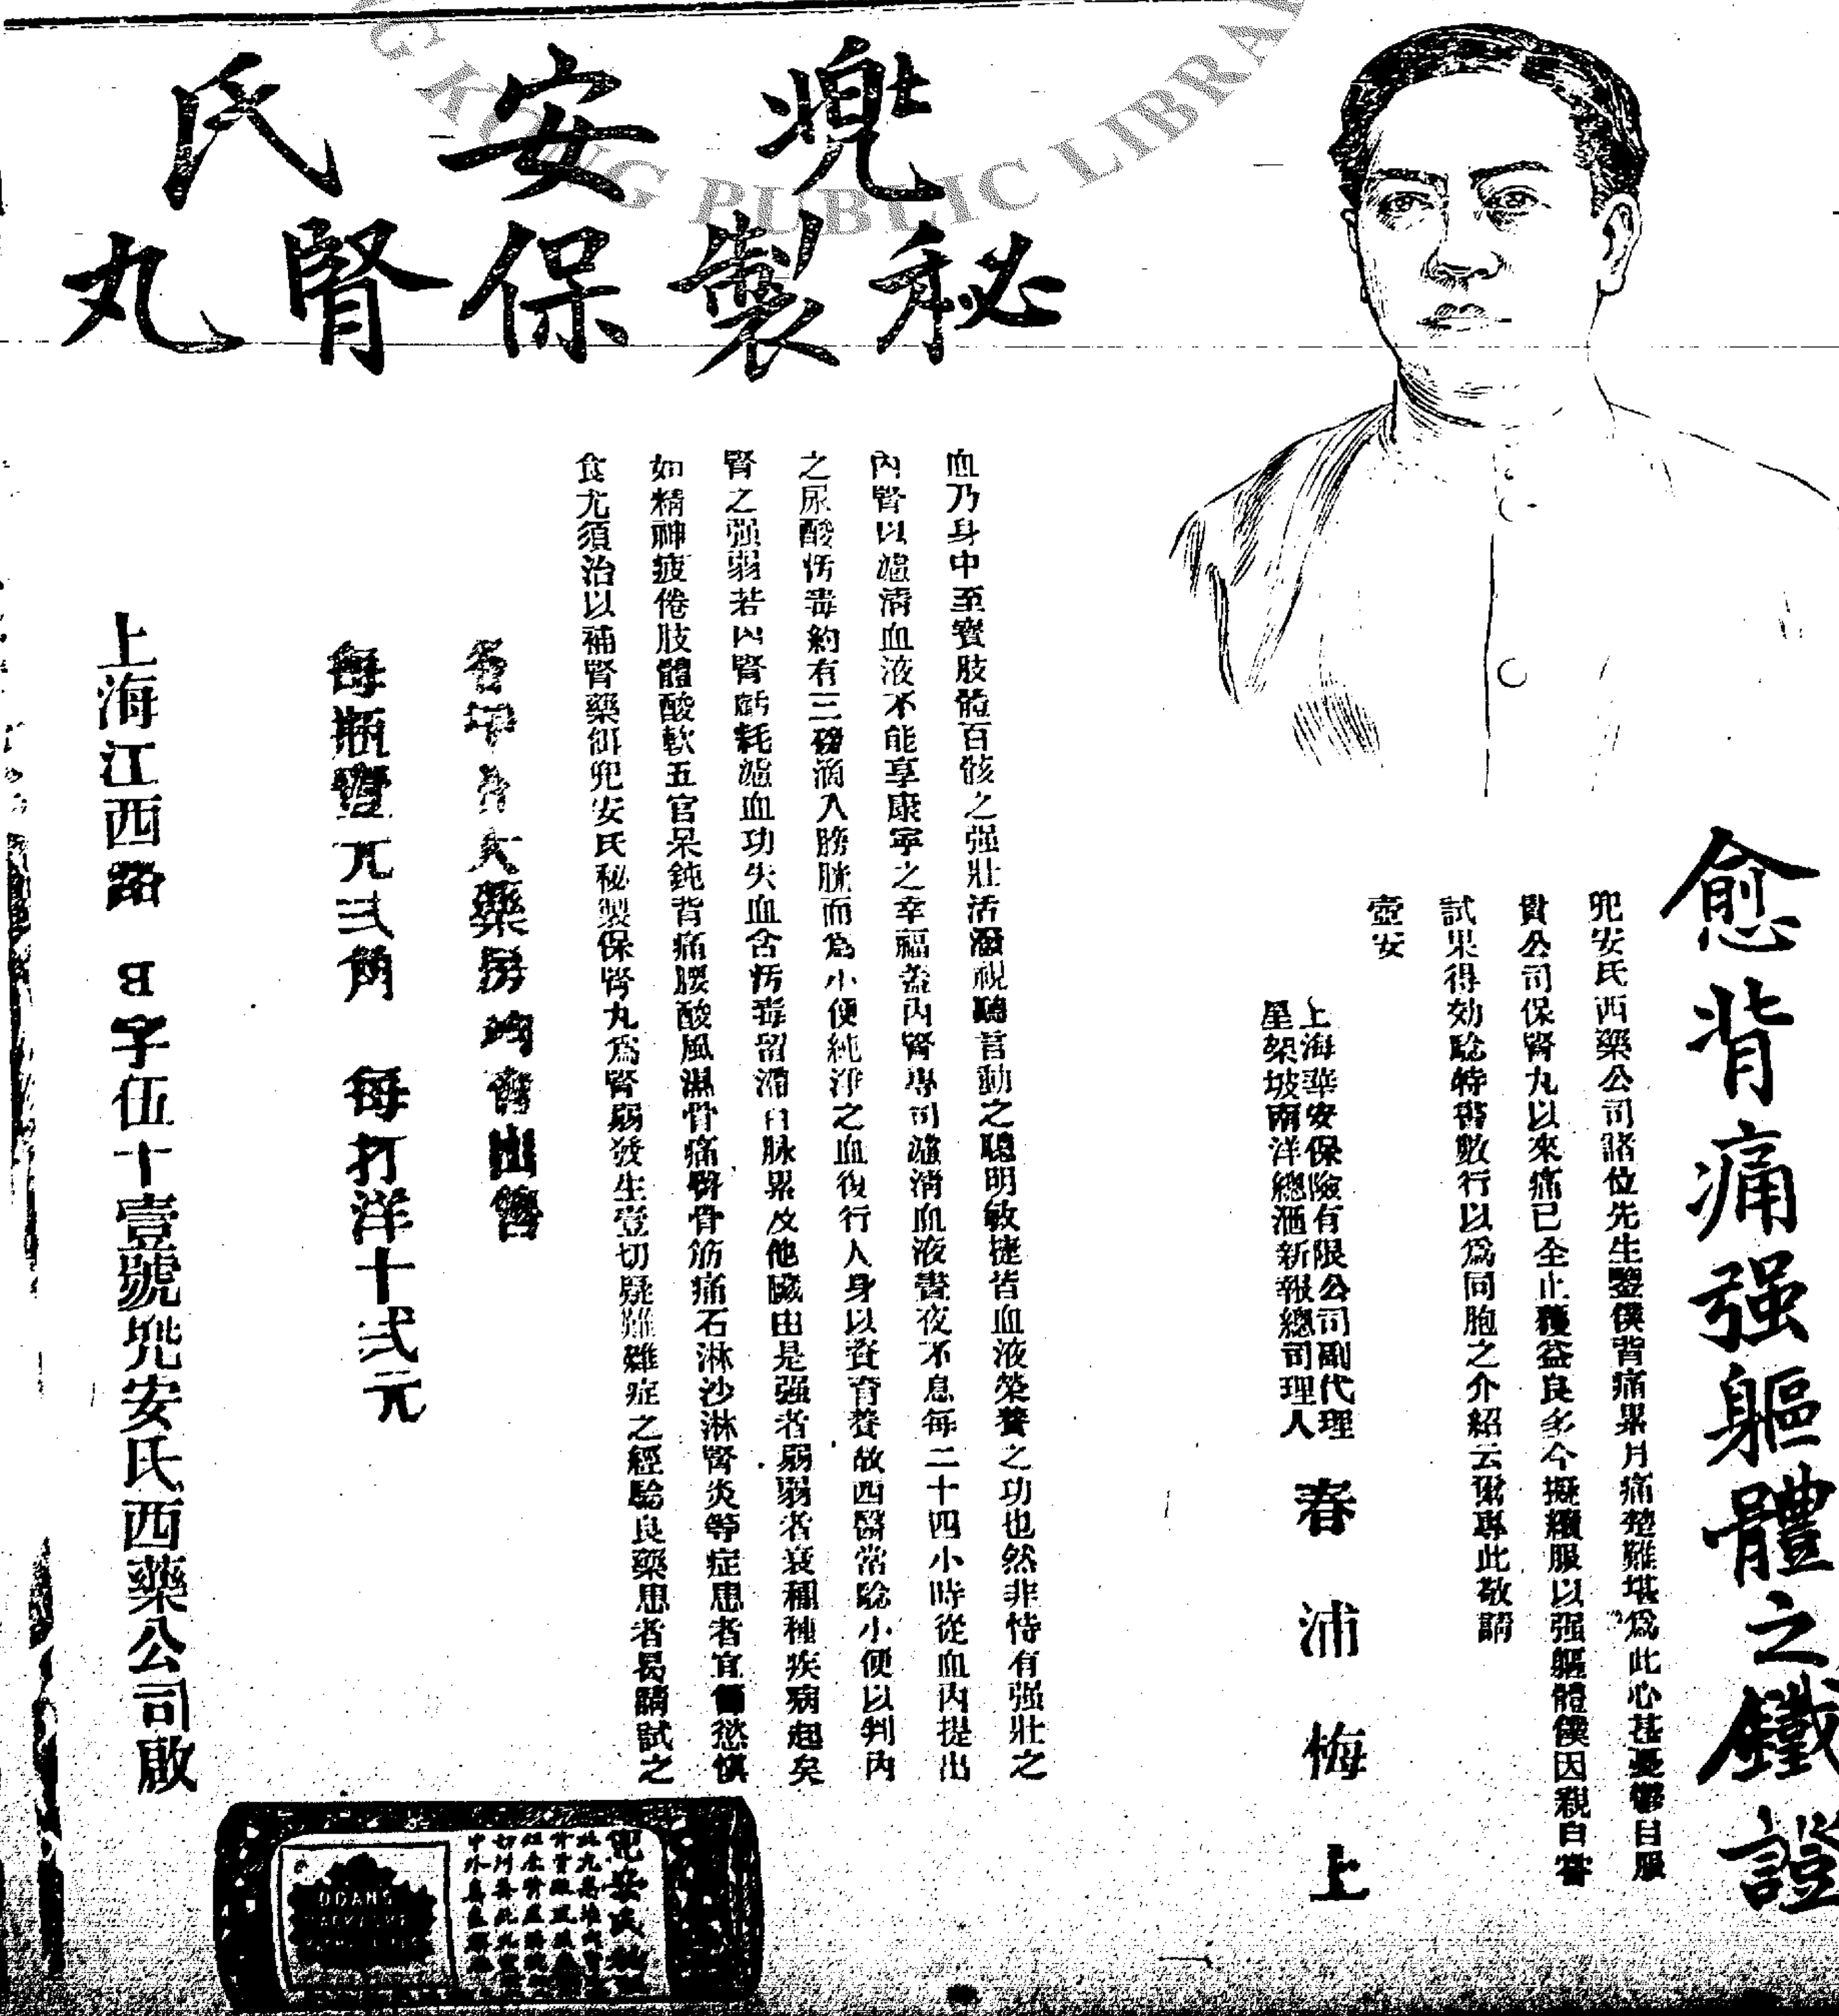 愈背痛强軀體之鐵證
兜安氏西藥公司諸位先生鑒僕背痛累月痛楚難堪爲此心甚憂鬱自服
貴公司保腎丸以來痛已全止穫益良多今擬續服以强軀體僕因親自嘗
試果得効騐特書數行以爲同胞之介紹云爾專此敬請
壺安
上海華安保險有限公司副代理
星架坡南洋總滙新報總司理人
春浦悔上
兜安氏
秘製保腎丸
血乃身中至寶肢體百骸之强壯活潑視聽言動之聰明敏捷皆血液榮養之功也然非恃有强壯之
內腎以濾淸血液不能享康寧之幸福蓋內腎專司濾淸血液晝夜不息每二十四小時從血內提出
之尿酸汚毒約有三磅滴入膀胱而爲小便純淨之血復行人身以資育養故西醫常騐小便以判內
腎之强弱若內腎虧耗濾血功失血含汚毒留滯百脉累及他臟由是强者弱弱者衰種種疾病起矣
如精神疲倦肢體酸軟五官呆鈍背痛腰酸風濕骨痛臀骨筋痛石淋沙淋腎炎等症患者宜懲慎
食尤須治以補腎藥餌兜安氏秘製保腎丸爲腎弱發生壹切疑難雜症之經騐良藥患者曷請試之
大藥房均有出售
每瓶壹元弍角 每打洋十弍元
上海江西路 B字伍十壹號兜安氏西藥公司啟
兜安氏秘
DOANS
HONG KONG PUBLIC LIBRA